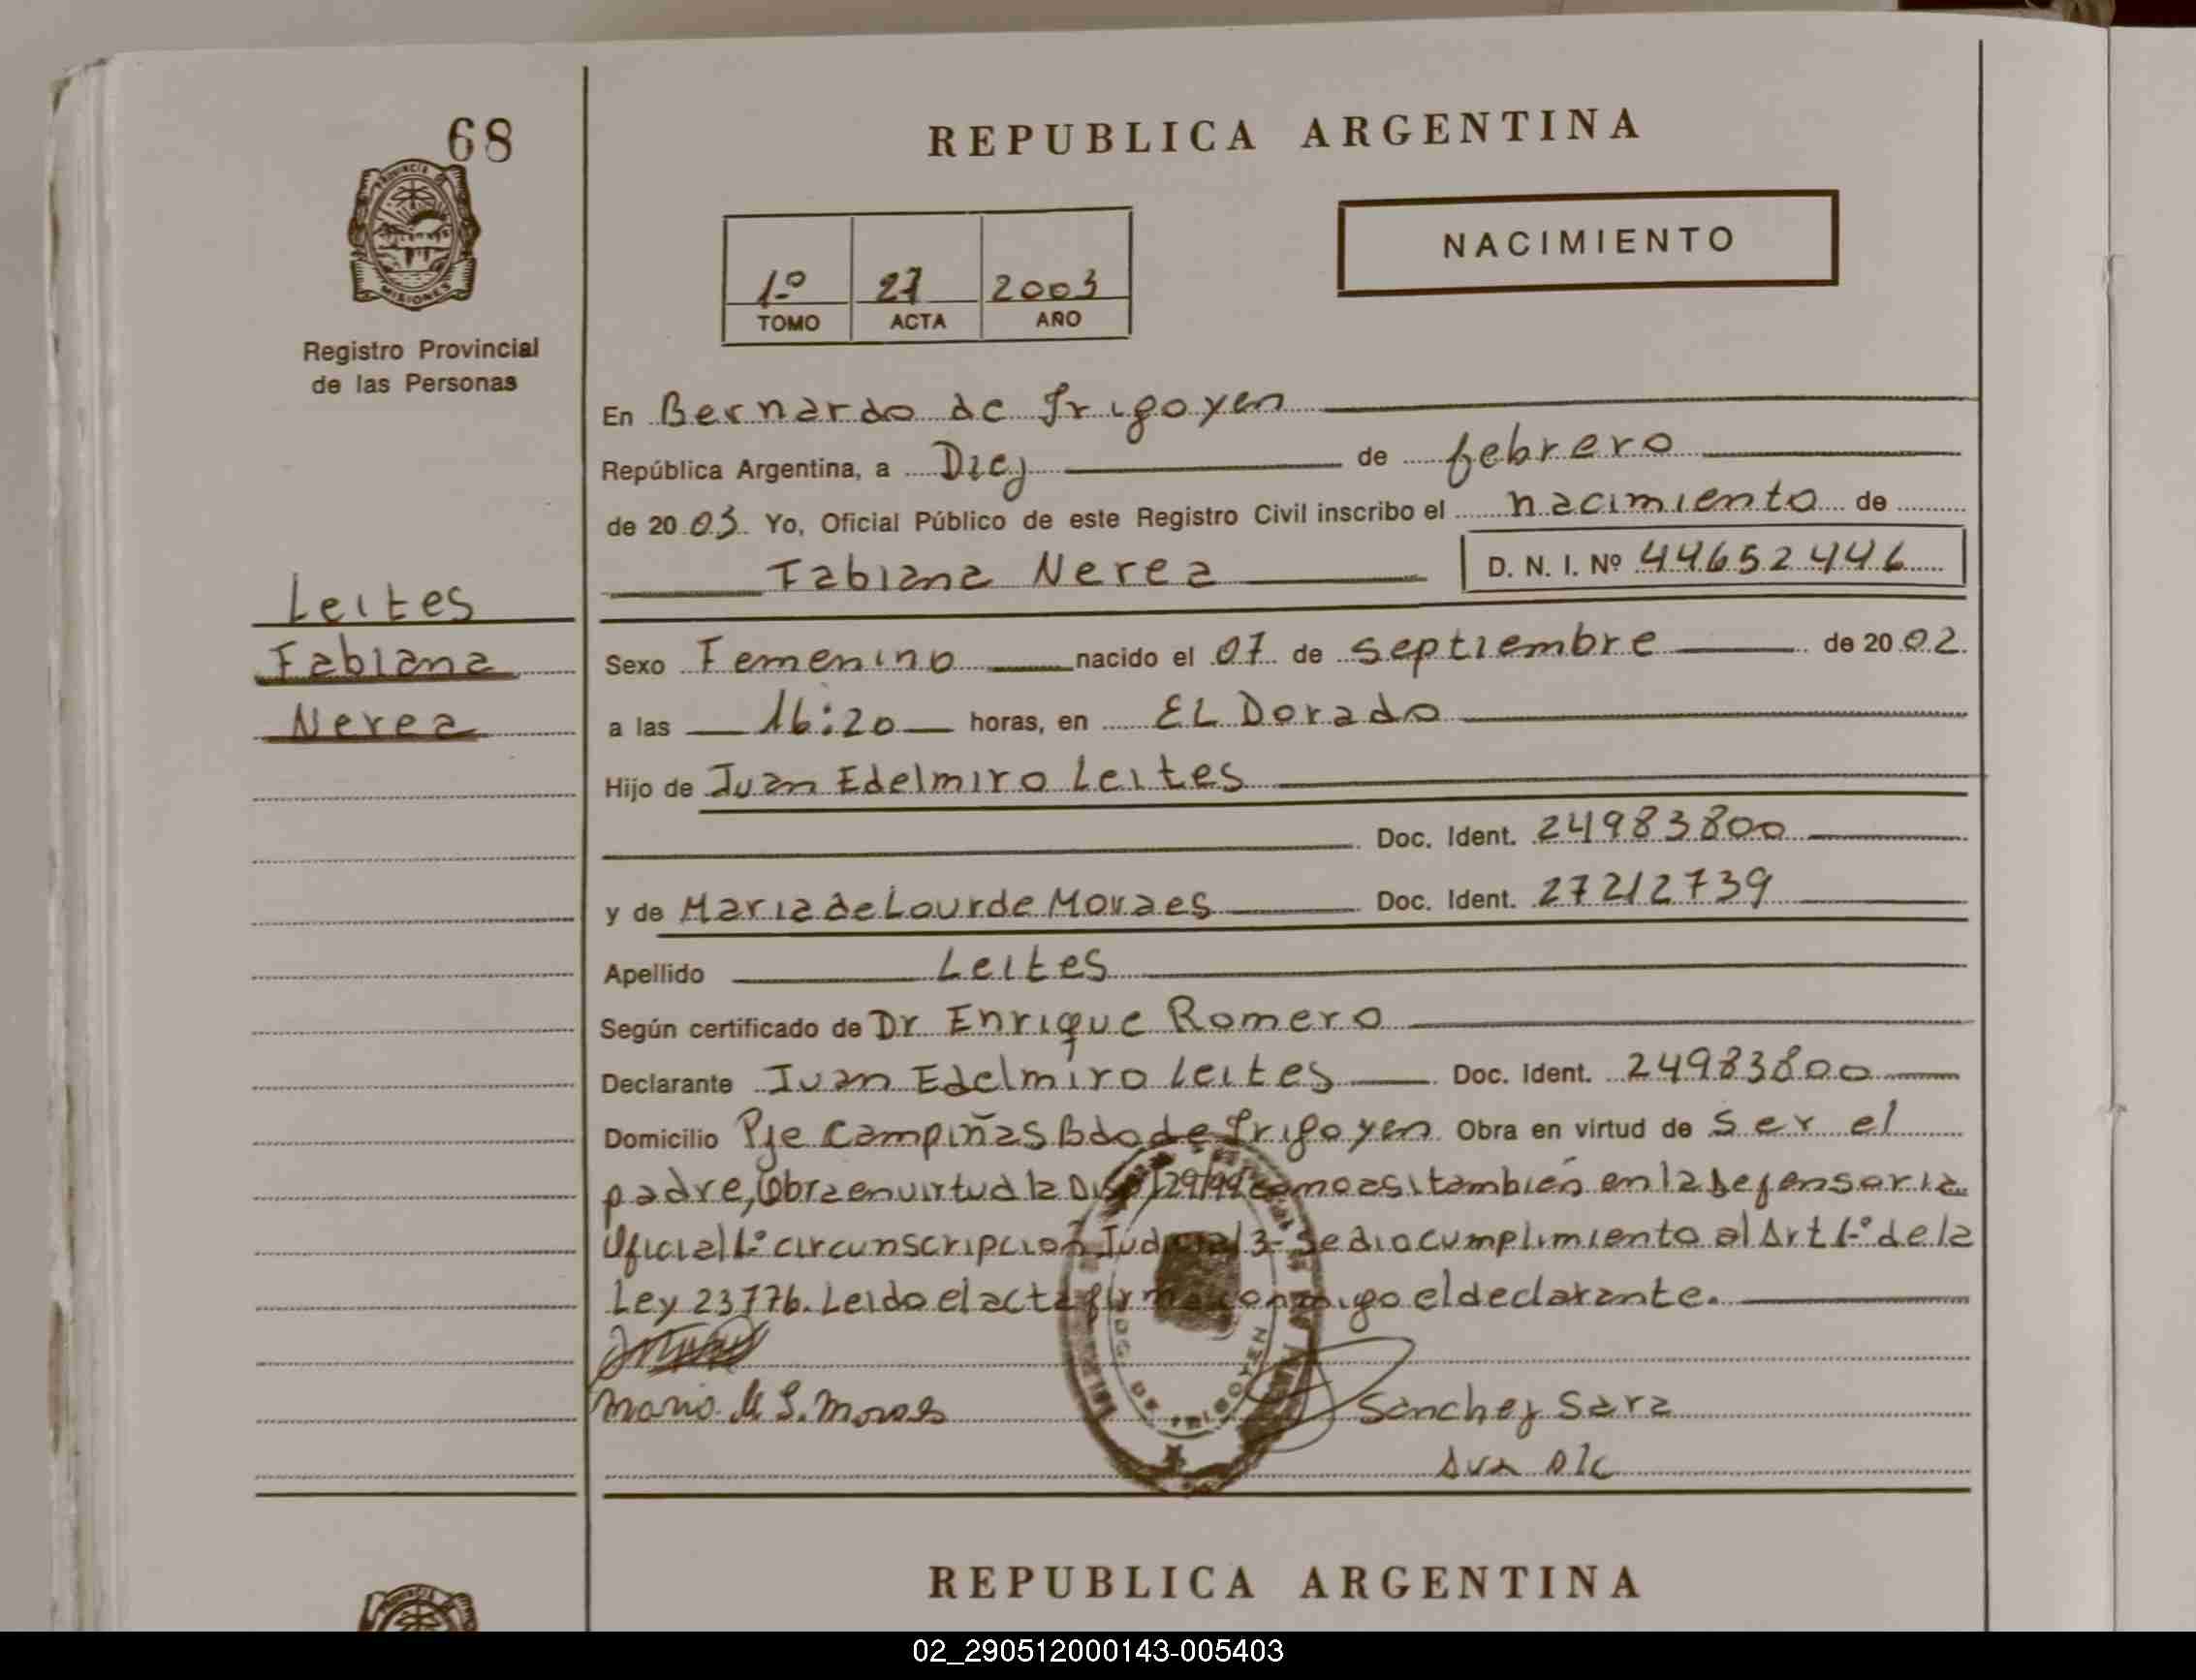 68
REPUBLICA ARGENTINA
PROVINCIA DE MISIONES
NACIMIENTO
1º 27 2003
TOMO ACTA AÑO
Registro Provincial
de las Personas
En Bernardo de Irigoyen
República Argentina, a Diez de febrero
de 2003 Yo, Oficial Público de este Registro Civil inscribo el nacimiento de
Fabiana Nerea D. N. I. Nº 44652446
Leites
Fabiana
Nerea
Sexo Femenino nacido el 07 de septiembre de 2002
a las 16:20 horas, en EL Dorado
Hijo de Juan Edelmiro Leites
Doc. Ident. 24983800
y de Maria de Lourde Moraes Doc. Ident. 27212739
Apellido Leites
Según certificado de Dr Enrique Romero
Declarante Juan Edelmiro Leites Doc. Ident. 24983800
Domicilio Pje Campiñas Bdo de Irigoyen Obra en virtud de ser el
padre, Obra en virtud la Disp 129/99 como asi también en la Defensoria
Oficial 1º circunscripción Judicial 3- Se dio cumplimiento al Art 1º de la
Ley 23776. Leido el acta firma conmigo el declarante.
Sanchez Sara
DE IRIGOYEN
REPUBLICA ARGENTINA
02_290512000143-005403